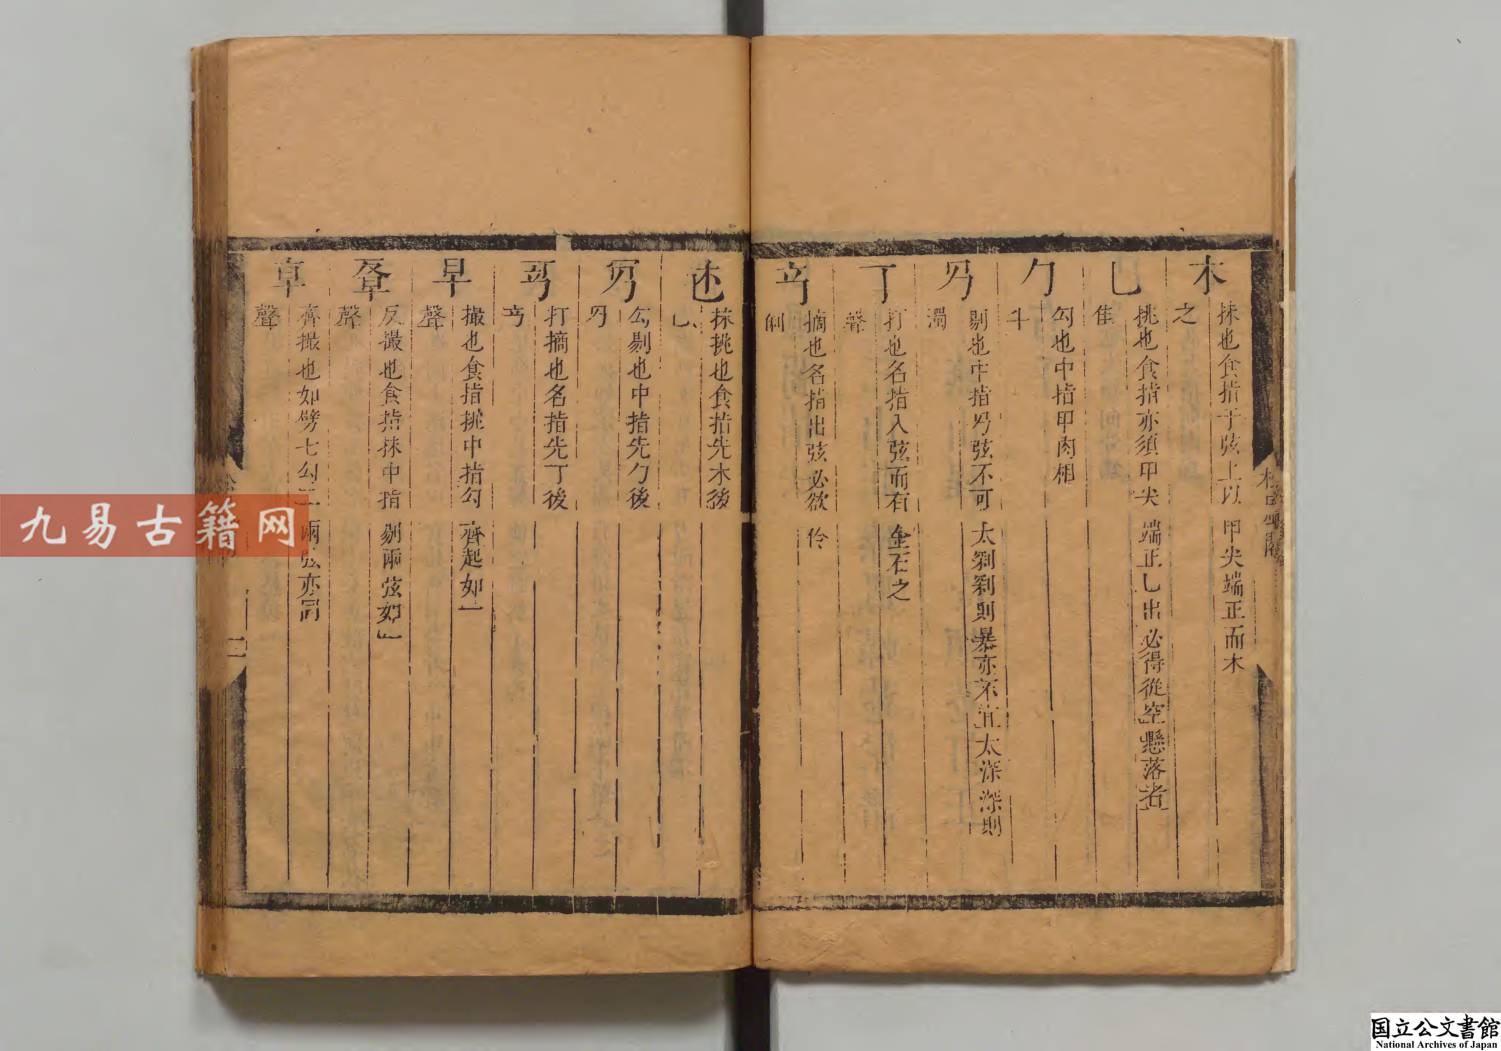 木
抹也食指于弦上以甲尖端正而木
之
乚
挑也食指亦須甲尖端正乚出必得從空懸落者
佳
勹
勾也中指甲肉相
斗
剔也中指弦不可太剝剝則暴亦不宜太深深則
濁
丁
打也名指入弦而有金石之
聲
摘也名指出弦必欲伶
俐
抹挑也食指先木後
乚
勾剔也中指先勹後
打摘也名指先丁後
早
撮也食指挑中指勾齊起如一
聲
反撮也食指抹中指剔兩弦如
聲
齊撮也如劈七勾二兩弦亦同
聲
九易古籍网
国立公文書館
National Archives of Japan